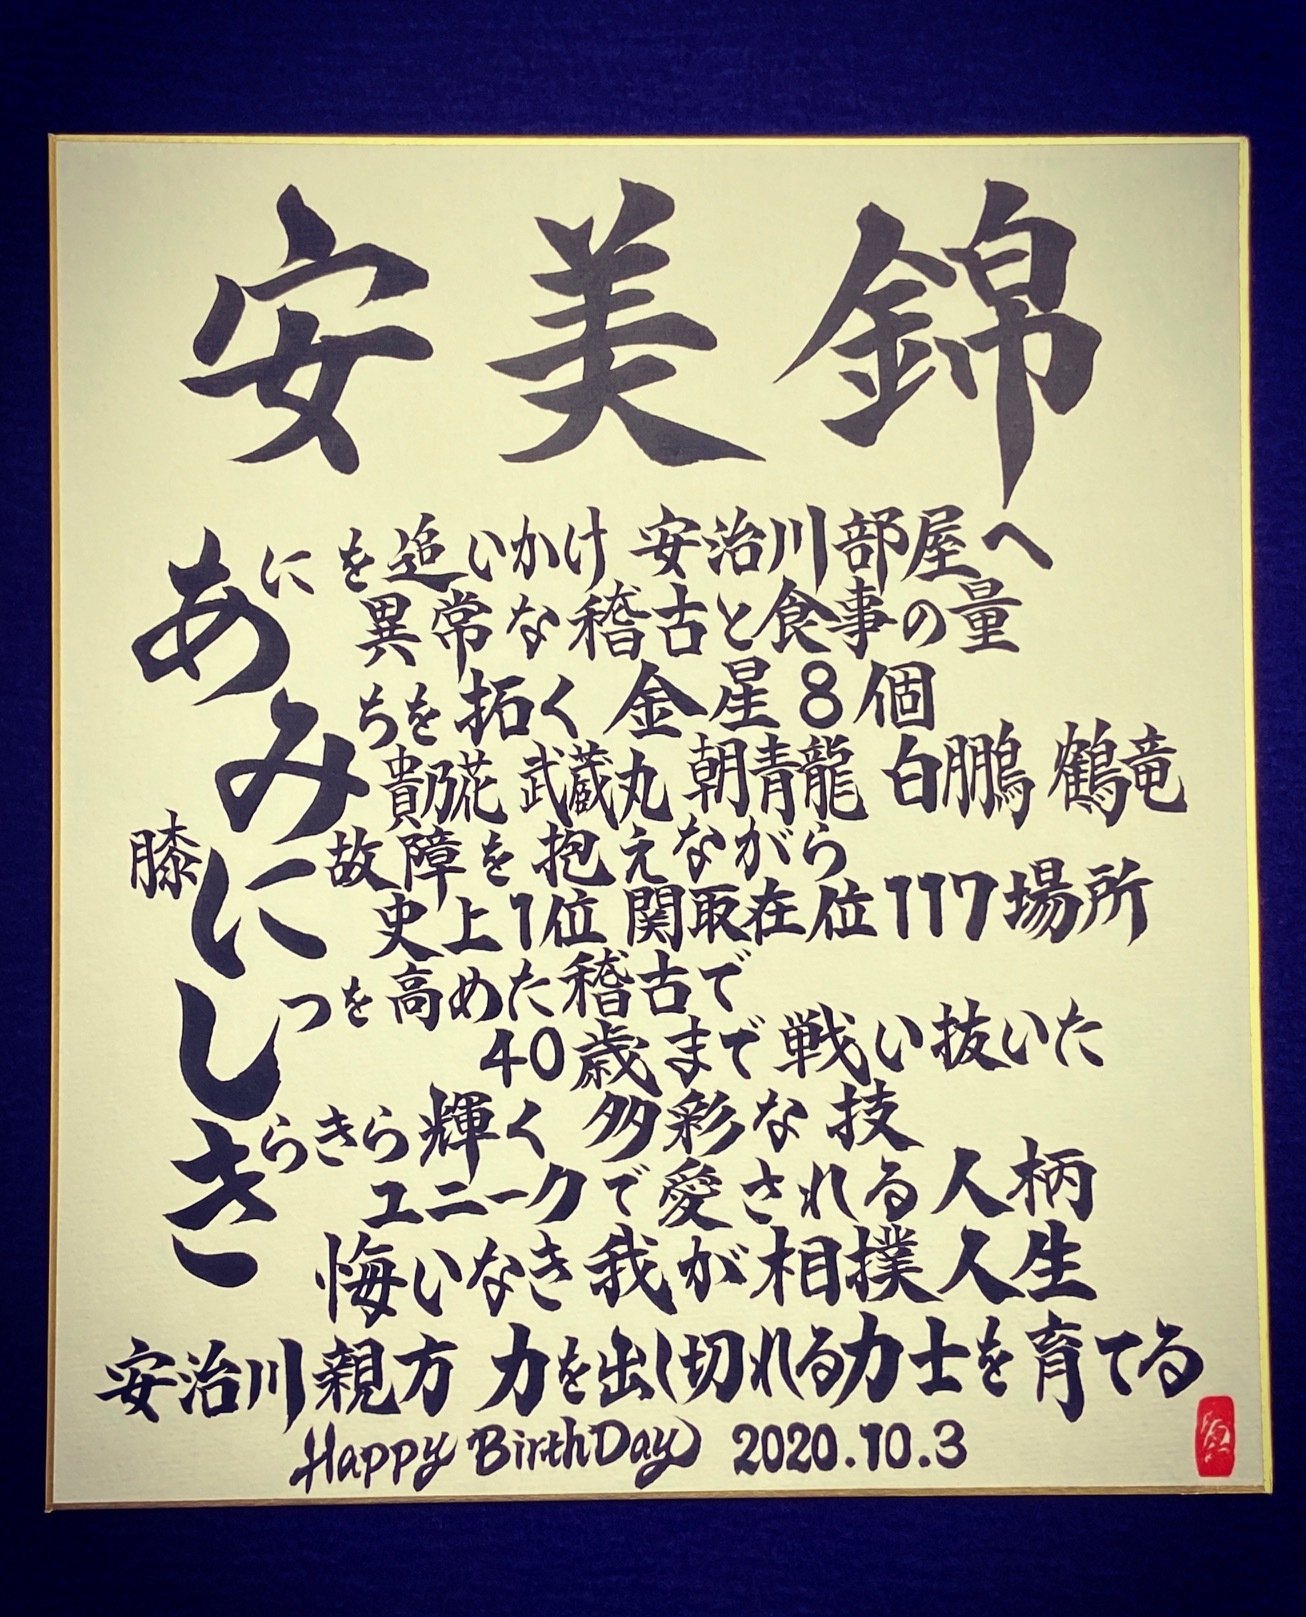 安美錦
あにを追いかけ 安治川部屋へ
異常な稽古と食事の量
みちを拓く 金星8個
貴乃花 武蔵丸 朝青龍 白鵬 鶴竜
膝に故障を抱えながら
史上1位 関取在位117場所
しつを高めた稽古で
40歳まで戦い抜いた
きらきら輝く 多彩な技
ユニークで愛される人柄
悔いなき我が相撲人生
安治川親方 力を出し切れる力士を育てる
Happy BirthDay 2020.10.3